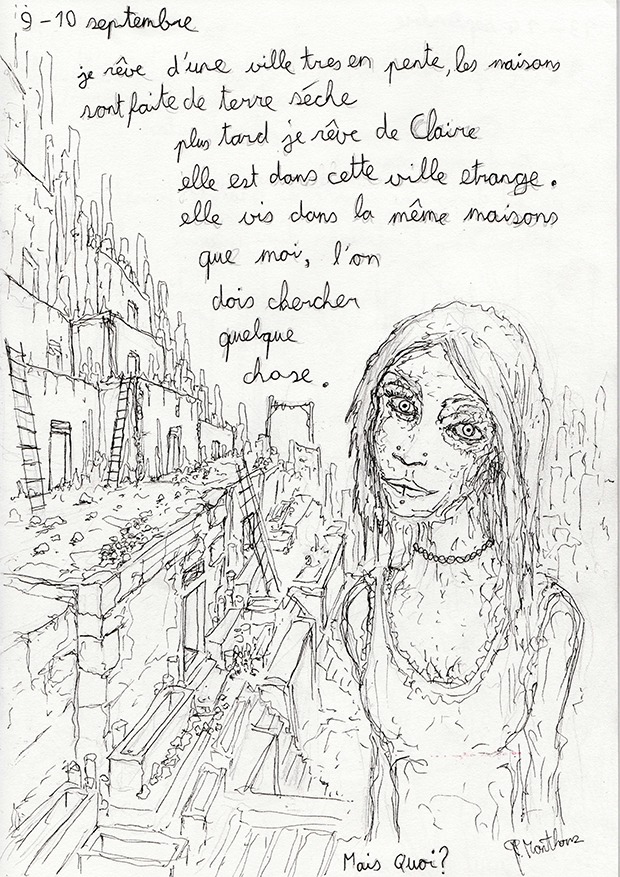 9-10 septembre
je rêve d'une ville tres en pente, les maisons
sont faite de terre séche
plus tard je rêve de Claire
elle est dans cette ville etrange.
elle vis dans la même maisons
que moi, l'on
dois chercher
quelque
chose.
Mais Quoi?